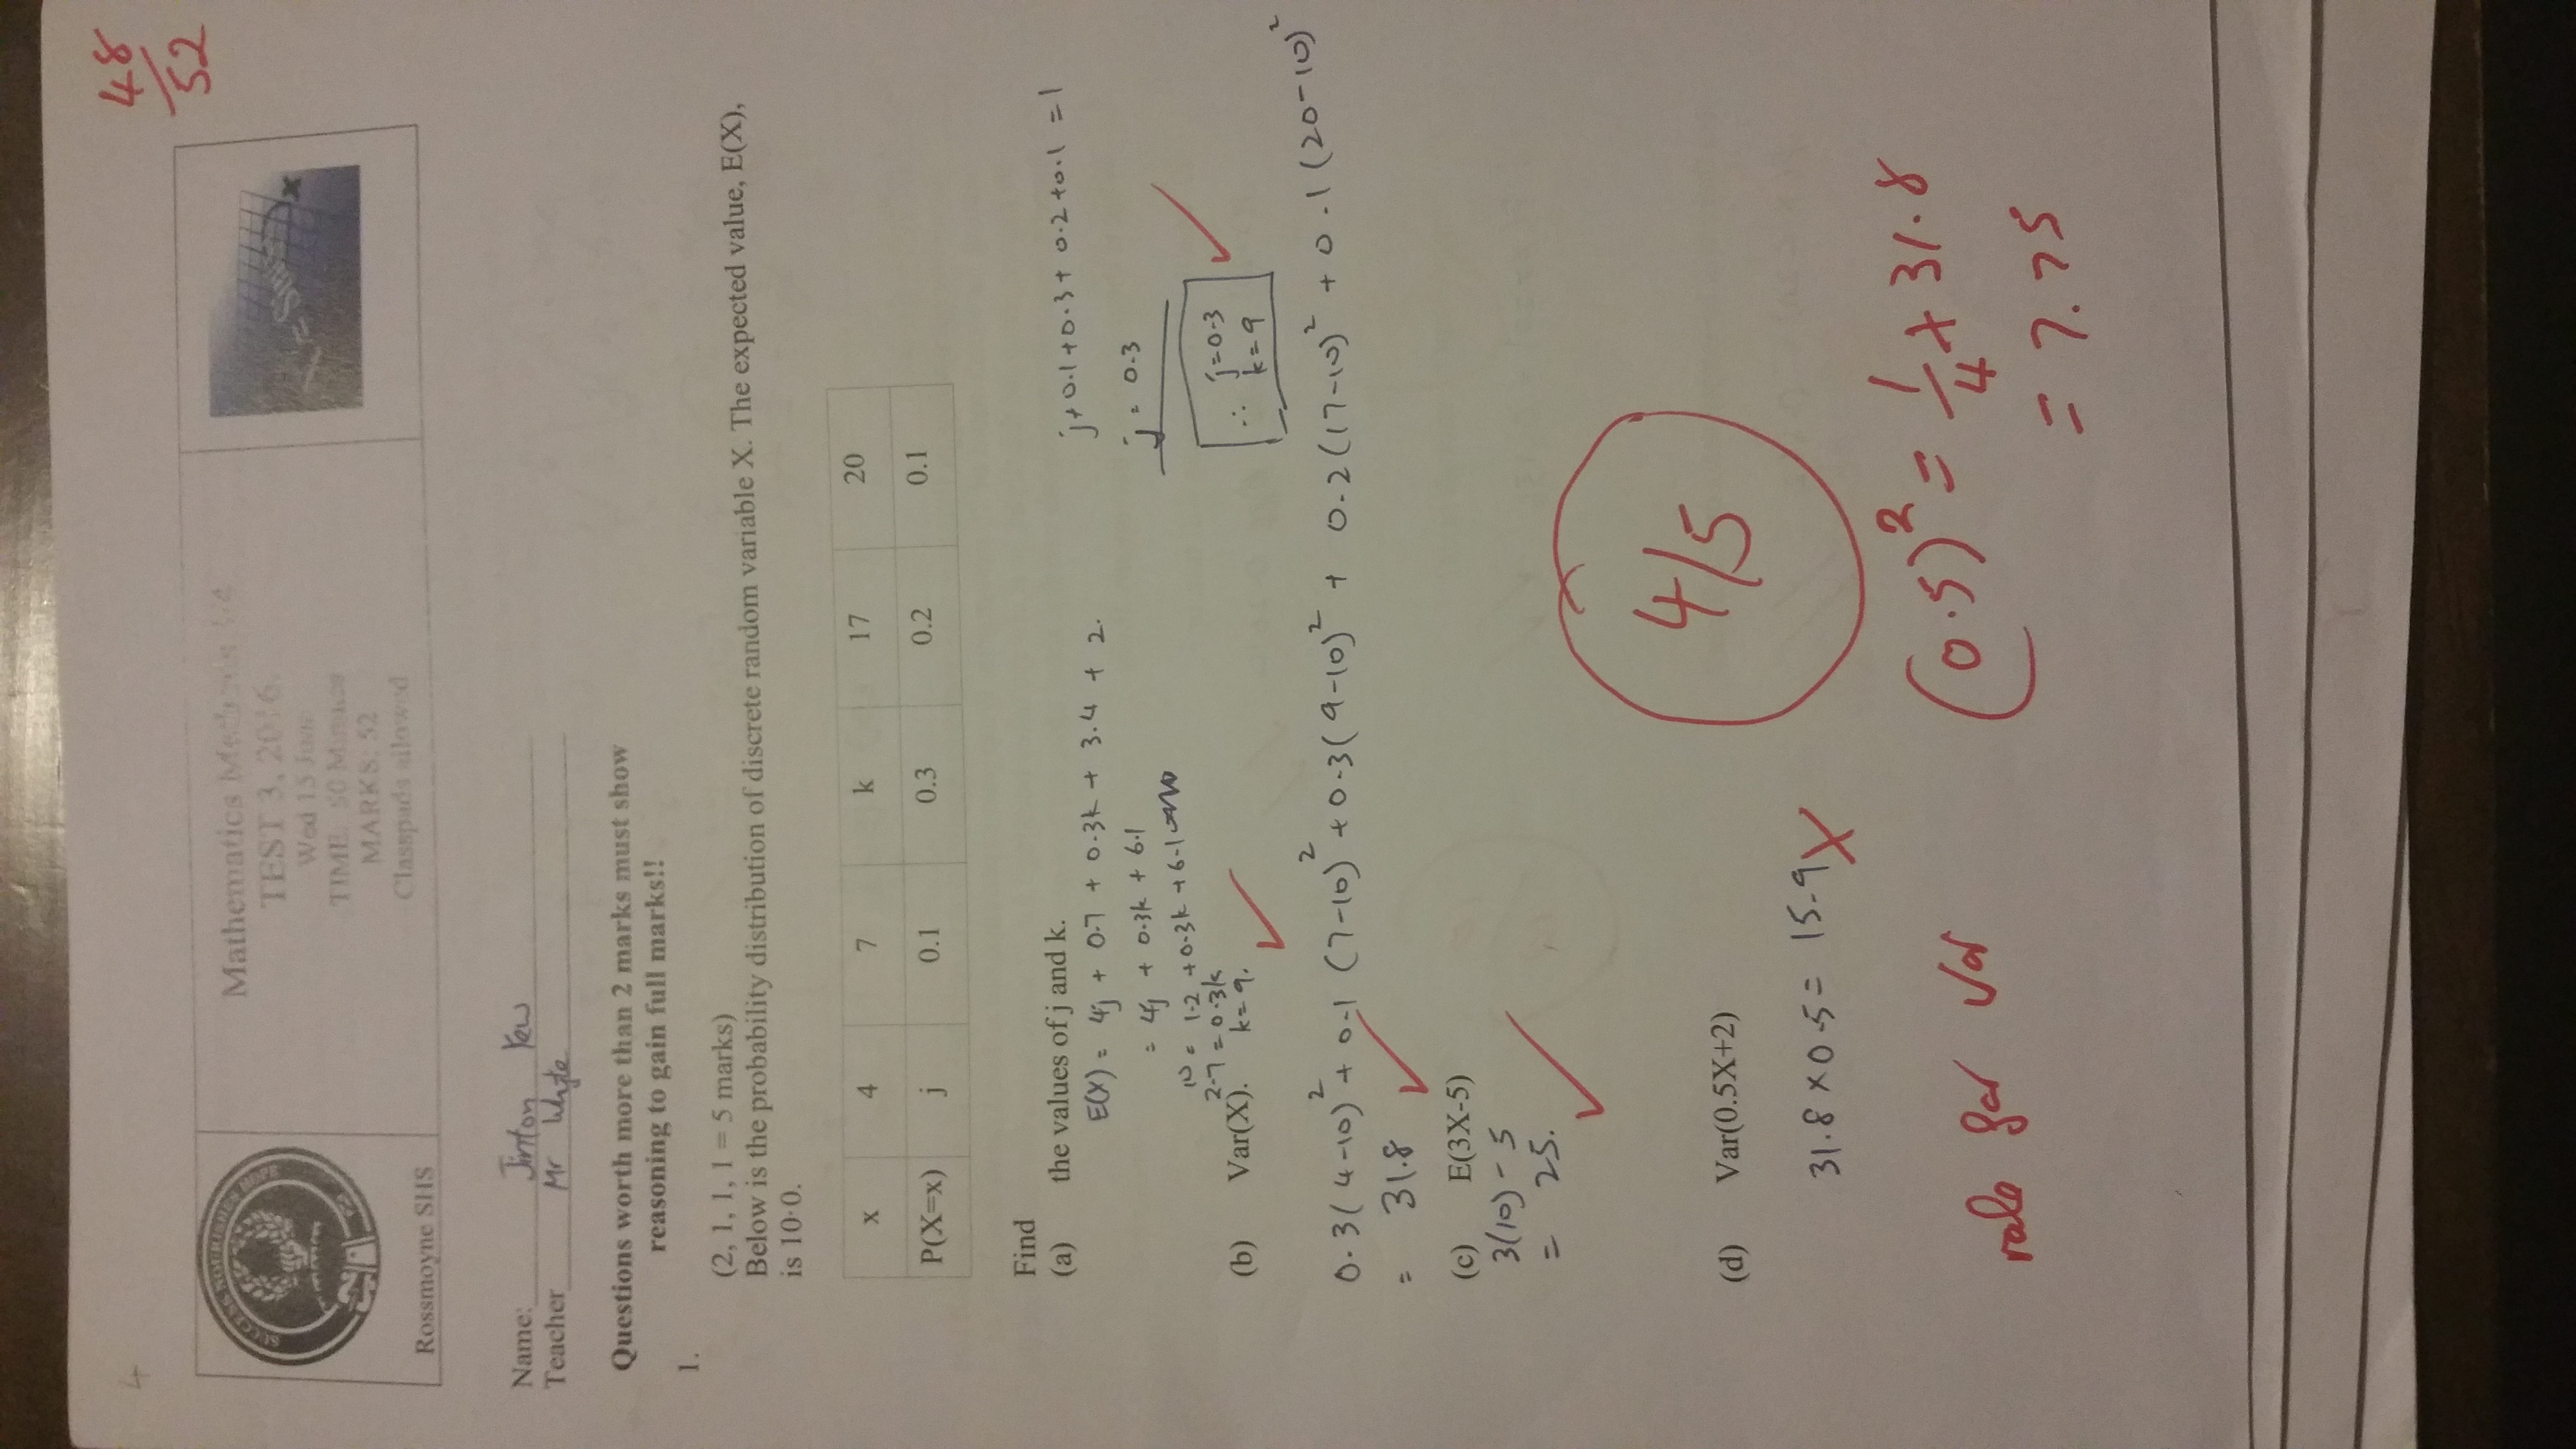 4
48
/
52
SUCCESS NOURISHES HOPE
Rossmoyne SHS
Mathematics Methods 3/4
TEST 3, 2016.
Wed 15 June
TIME: 50 Minutes
MARKS: 52
Classpads allowed
Name: Jinton Yew
Teacher Mr Whyte
Questions worth more than 2 marks must show
reasoning to gain full marks!!
1.
(2, 1, 1, 1 = 5 marks)
Below is the probability distribution of discrete random variable X. The expected value, E(X),
is 10·0.
x 4 7 k 17 20
P(X=x) j 0.1 0.3 0.2 0.1
Find
(a) the values of j and k.
E(X) = 4j + 0.7 + 0.3k + 3.4 + 2.
= 4j + 0.3k + 6.1
10 = 1.2 + 0.3k + 6.1
2.7 = 0.3k
k = 9.
j + 0.1 + 0.3 + 0.2 + 0.1 = 1
j = 0.3
∴ j = 0.3
k = 9
(b) Var(X).
0.3(4-10)² + 0.1 (7-10)² + 0.3(9-10)² + 0.2(17-10)² + 0.1(20-10)²
= 31.8
(c) E(3X-5)
3(10) - 5
= 25.
4/5
(d) Var(0.5X+2)
31.8 × 0.5 = 15.9
rule for Var
(0.5)² = 1/4 × 31.8
= 7.75